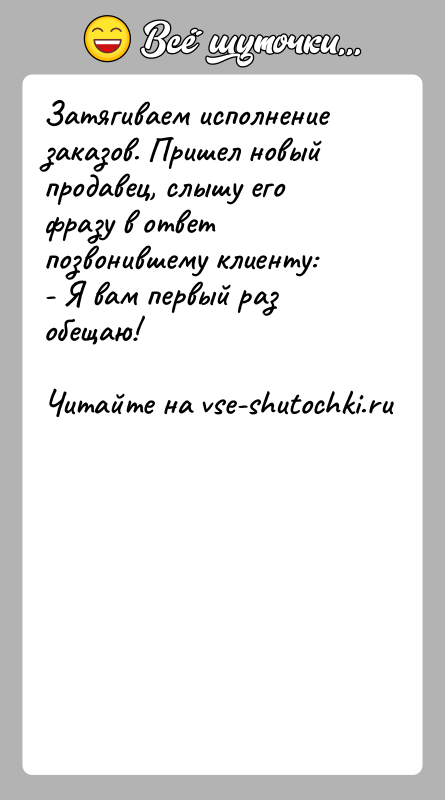 Всё шуточки...
Затягиваем исполнение
заказов. Пришел новый
продавец, слышу его
фразу в ответ
позвонившему клиенту:
- Я вам первый раз
обещаю!
Читайте на vse-shutochki.ru